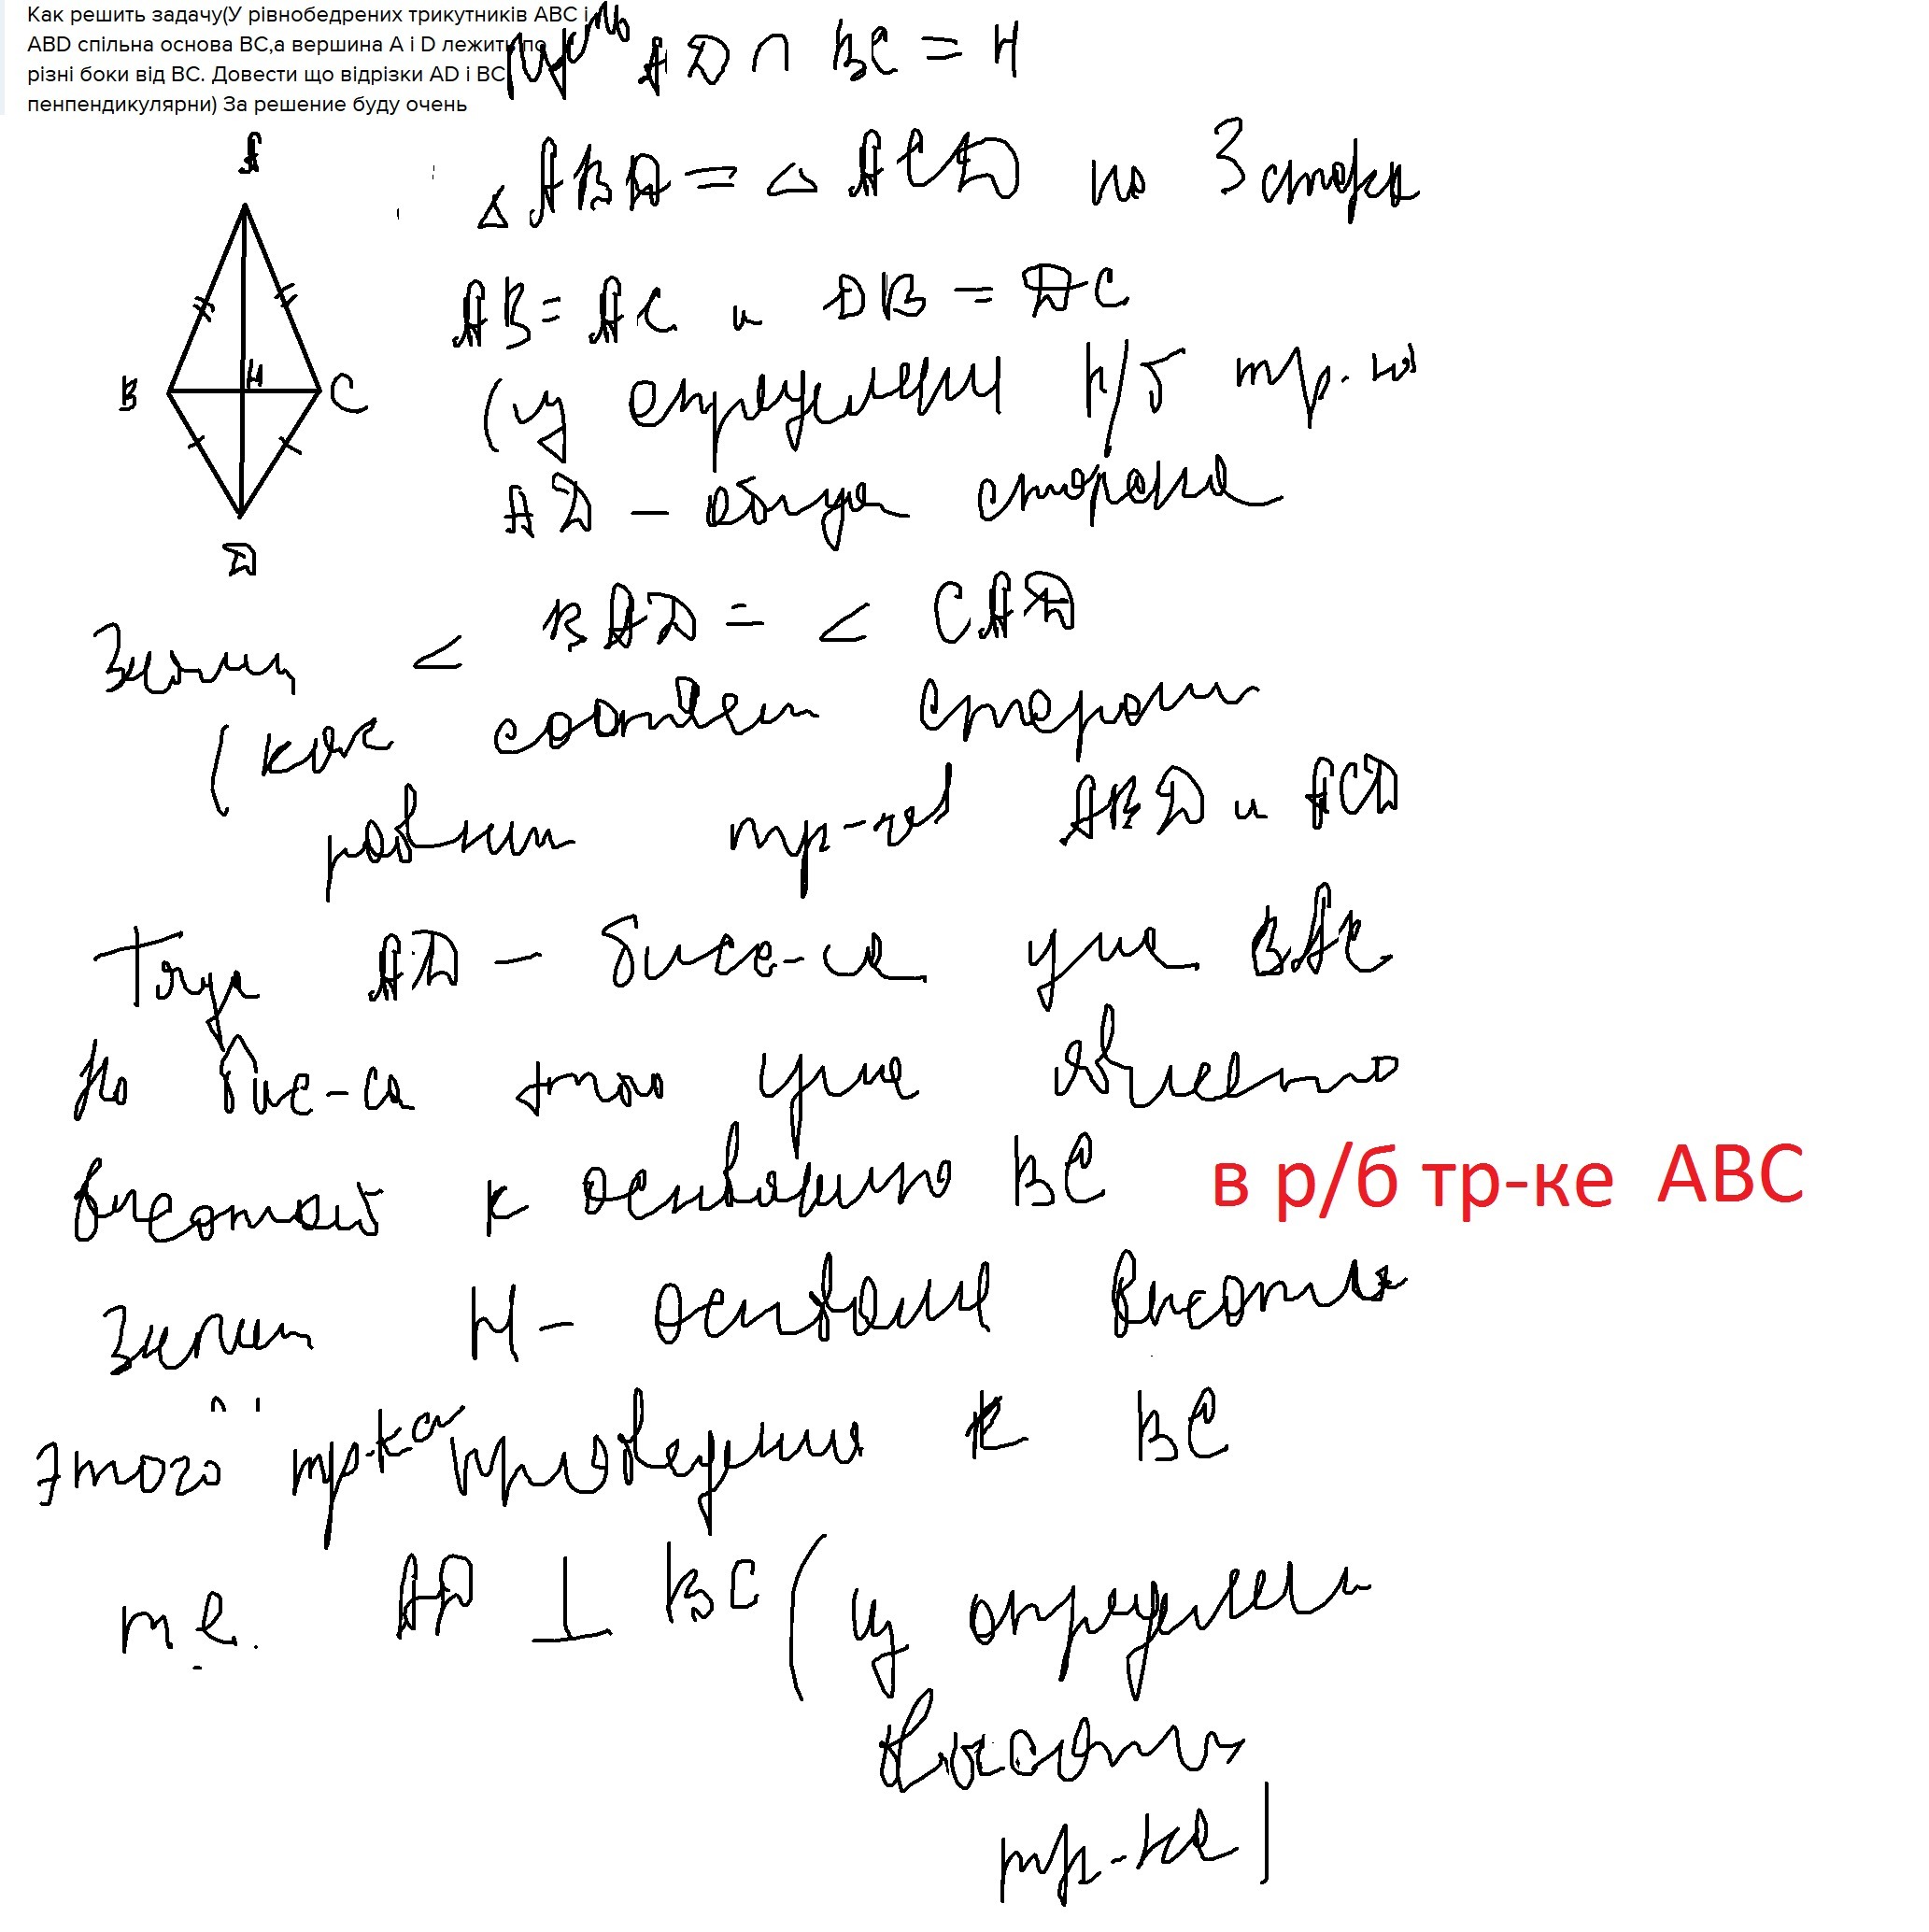 Как решить задачу(У рівнобедрених трикутників ABC і
ABD спільна основа BC,а вершина A і D лежить по
різні боки від BC. Довести що відрізки AD і BC
пенпендикулярни) За решение буду очень
Пусть AD ∩ BC = H
A
B
H
C
D
△ABD = △ACD по 3 сторо
AB = AC и DB = DC
(из определени р/б тр.-ка
AD – общая сторона
< BAD = < CAD
(как соответ сторон
равных тр-ов ABD и ACD
Тогда AD – бисс-са угла BAC
Но бис-са этого угла
высотой к основанию BC
в р/б тр-ке ABC
Значит H – основание высоты
этого тр-ка проведении к BC
т.е. AD ⊥ BC (из определени
высоты
тр-ка)